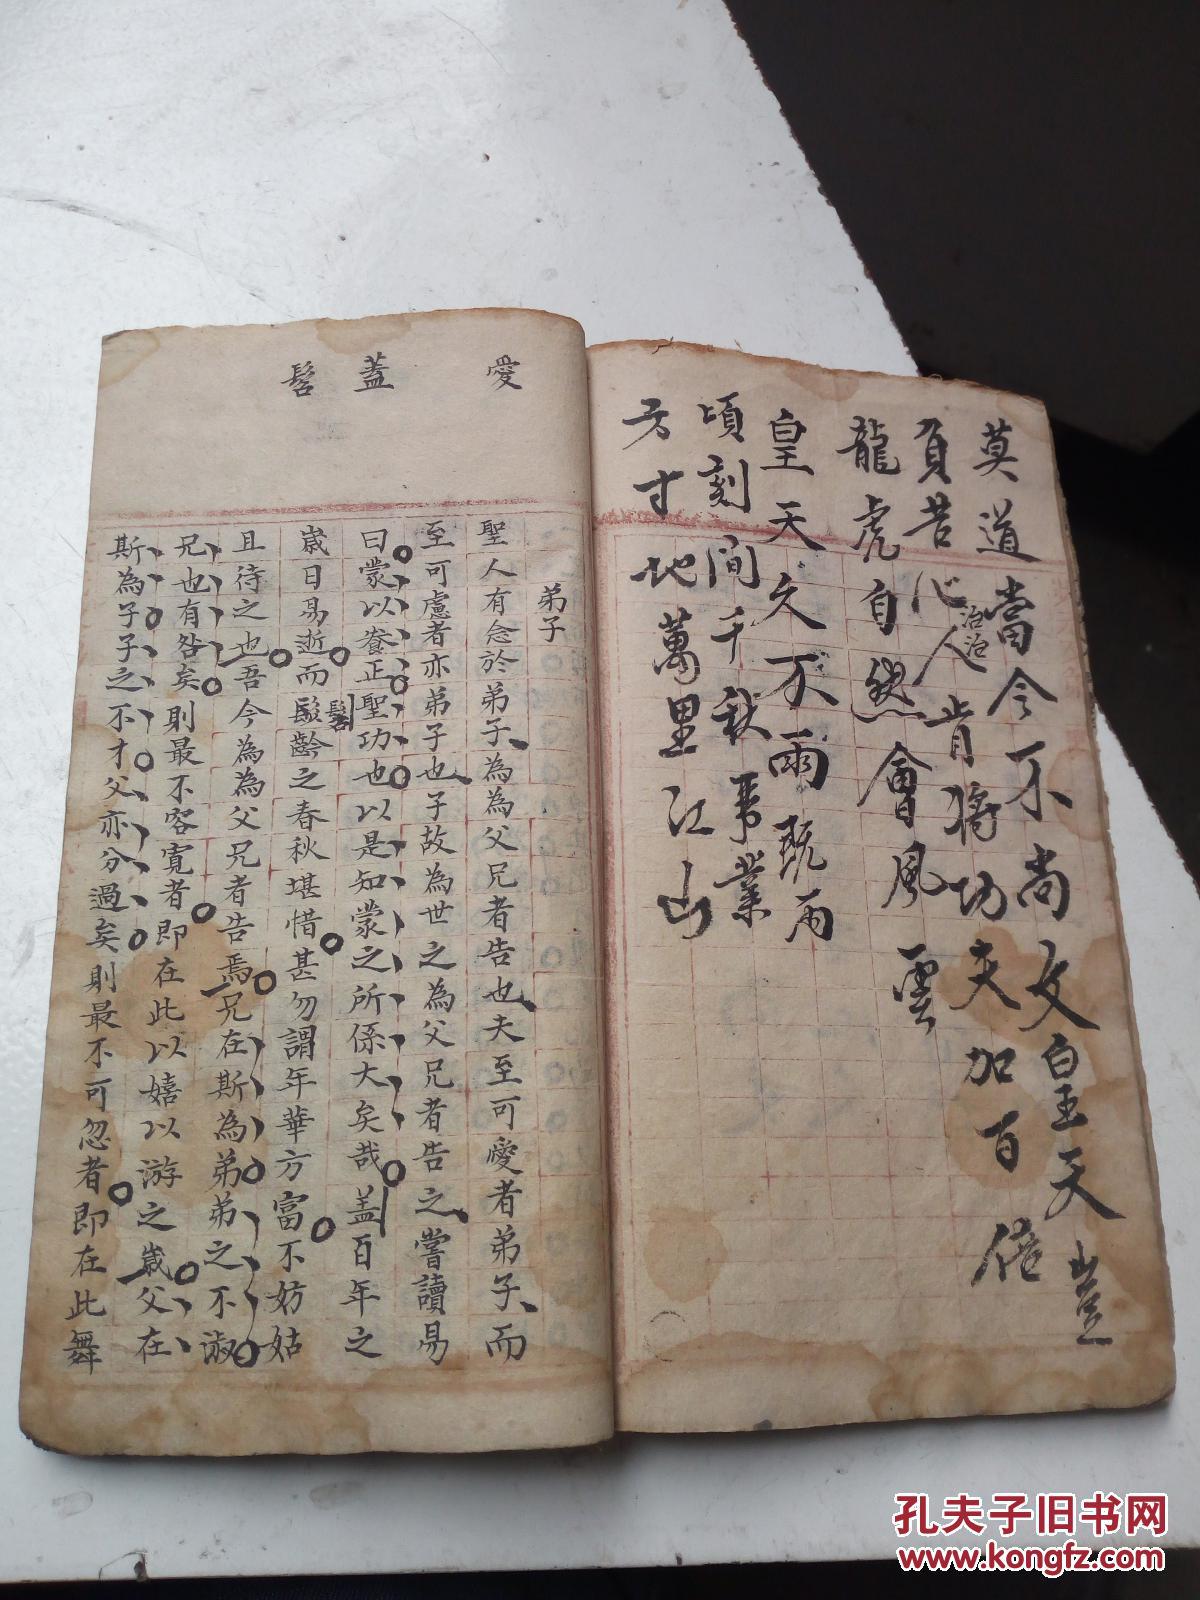 莫道當今不尚文皇天豈
負苦心人肯將功夫加百倍
治治
龍虎自然會風雲
皇天久不雨既雨
頃刻間千秋事業
方寸地萬里江山
愛
蓋
髫
弟子
聖人有念於弟子為為父兄者告也夫至可愛者弟子而
至可慮者亦弟子也子故為世之為父兄者告之嘗讀易
曰蒙以養正聖功也以是知蒙之所係大矣哉盖百年之
歲日易逝而髫齡之春秋堪惜甚勿謂年華方富不妨姑
且待之也吾今為為父兄者告焉兄在斯為弟弟之不淑
兄也有咎矣則最不容寬者即在此以嬉以游之歲父在
斯為子子之不才父亦分過矣則最不可忽者即在此舞
孔夫子旧书网
www.kongfz.com